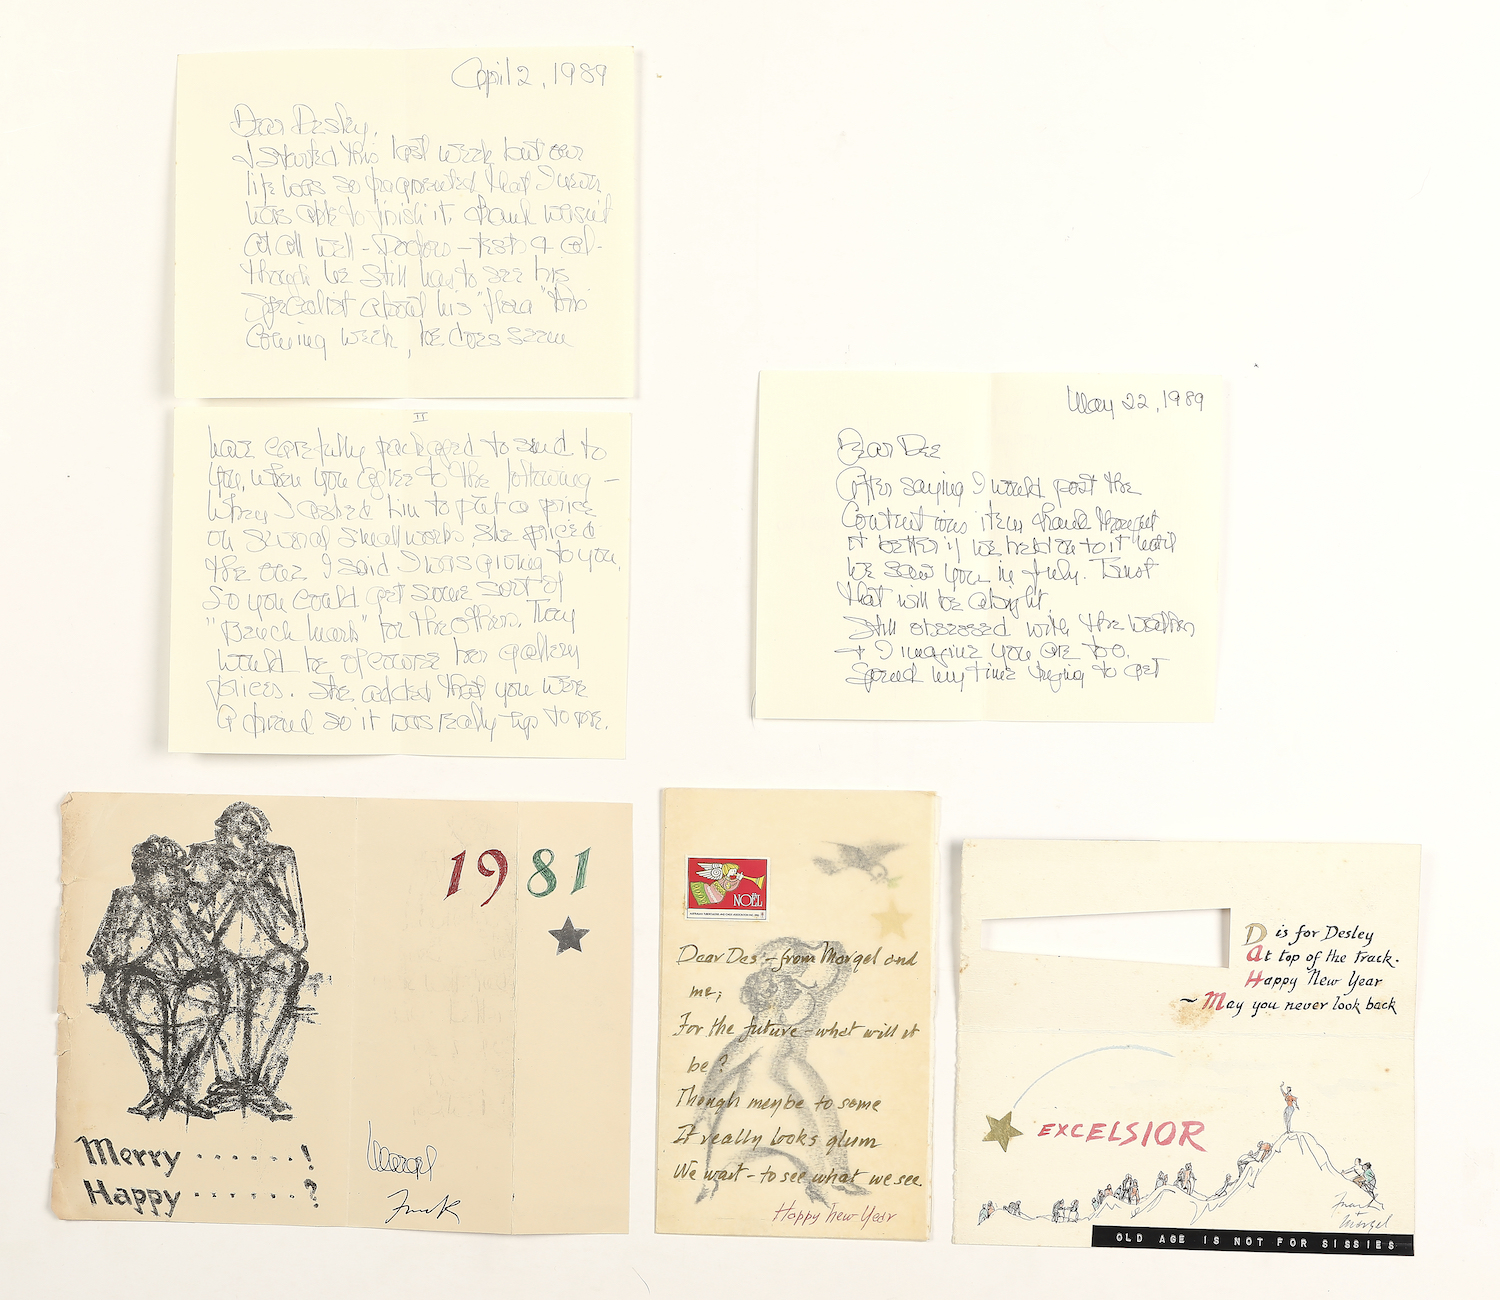 April 2, 1989
Dear Desley,
I started this last week but our
life was so fragmented that I never
was able to finish it. Frank wasn't
at all well - Doctors - tests & al-
though he still has to see his
specialist about his "flora" this
coming week, he does seem
II
have carefully packaged to send to
you, when you agree to the following -
When I asked him to put a price
on several small works, she priced
the ones I said I was giving to you,
so you could get some sort of
"Bench mark" for the others. They
would be of course her gallery
prices. She added that you were
a friend so it was really up to me.
May 22, 1989
Dear Dee
After saying I would post the
contentious item Frank thought
it better if we held on to it until
we saw you in July. Trust
that will be alright.
Still obsessed with the weather
+ I imagine you are too.
Spend my time trying to get
1981
Merry ......!
Happy .......?
Margel
Frank
NOËL
Dear Des - from Margel and
me;
For the future - what will it
be?
Though maybe to some
It really looks glum
We wait - to see what we see.
Happy New Year
D is for Desley
At top of the track.
Happy New Year
~ May you never look back
EXCELSIOR
Frank
+
Margel
OLD AGE IS NOT FOR SISSIES